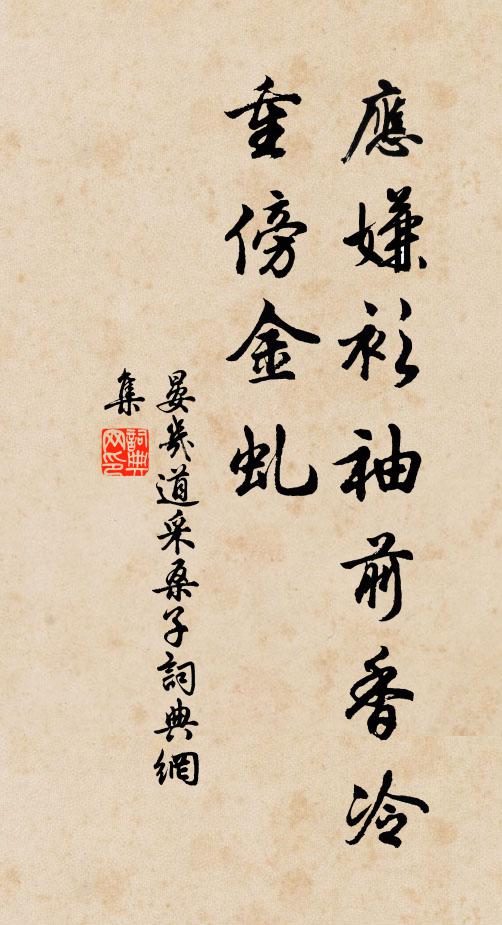 應嫌衫袖前香冷
重傍金虬
晏幾道采桑子詞典網
集
詞典
网印